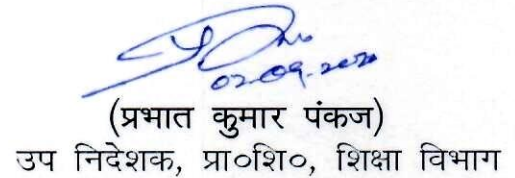 02.09.2020
(प्रभात कुमार पंकज)
उप निदेशक, प्रा०शि०, शिक्षा विभाग